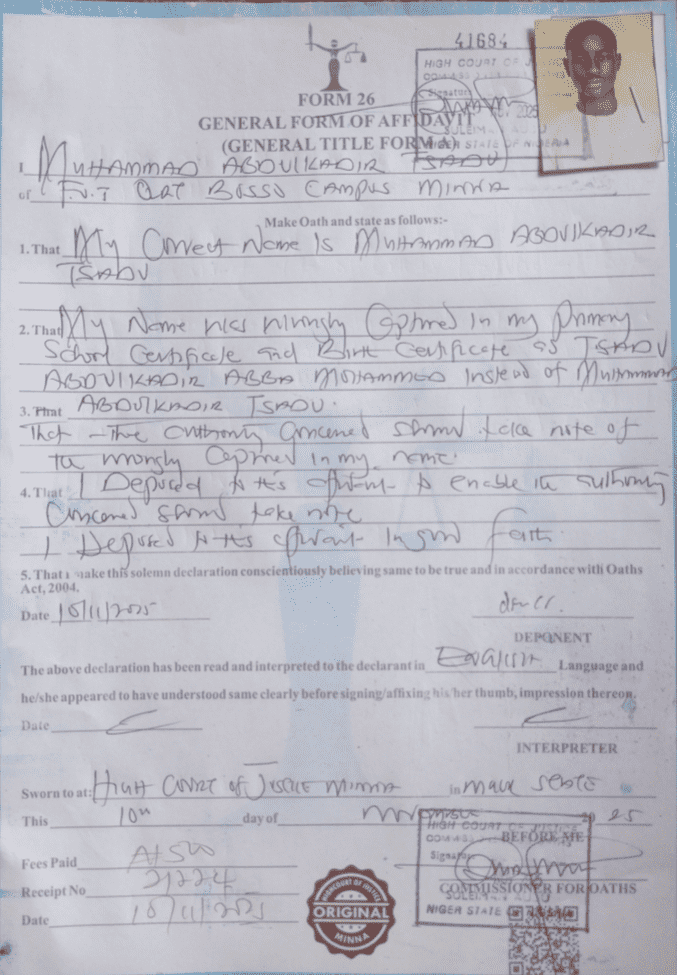 41684
HIGH COURT OF
Signature
2025
SULEIMAN
NIGER STATE OF NIGERIA
FORM 26
GENERAL FORM OF AFFIDAVIT
(GENERAL TITLE FORM A)
I MUHAMMAD ABDULKADIR TSADU
of F.U.T QAT BOSSO CAMPUS MINNA
Make Oath and state as follows:-
1. That My Correct Name Is MUHAMMAD ABDULKADIR
TSADU
2. That My Name was wrongly Captured in my Primary
School Certificate and Birth Certificate as TSADU
ABDULKADIR ABBA MOHAMMED Instead of Muhammad
3. That ABDULKADIR TSADU.
That - The authority Concerned should take note of
the wrongly Captured in my name.
4. That I Deposed to this affidavit to enable the authority
Concerned should take note
I Deposed to this affidavit in good faith.
5. That i make this solemn declaration conscientiously believing same to be true and in accordance with Oaths
Act, 2004.
Date 10/11/2025
DEPONENT
The above declaration has been read and interpreted to the declarant in ENGLISH Language and
he/she appeared to have understood same clearly before signing/affixing his/her thumb, impression thereon.
Date
INTERPRETER
Sworn to at: HIGH COURT OF JUSTICE MINNA in
This 10th day of November 2025
HIGH COURT OF JUSTICE
BEFORE ME
Signature
Fees Paid
COMMISSIONER FOR OATHS
Receipt No 21224
SULEIMAN
NIGER STATE
Date 10/11/2025
HIGH COURT OF JUSTICE
ORIGINAL
MINNA